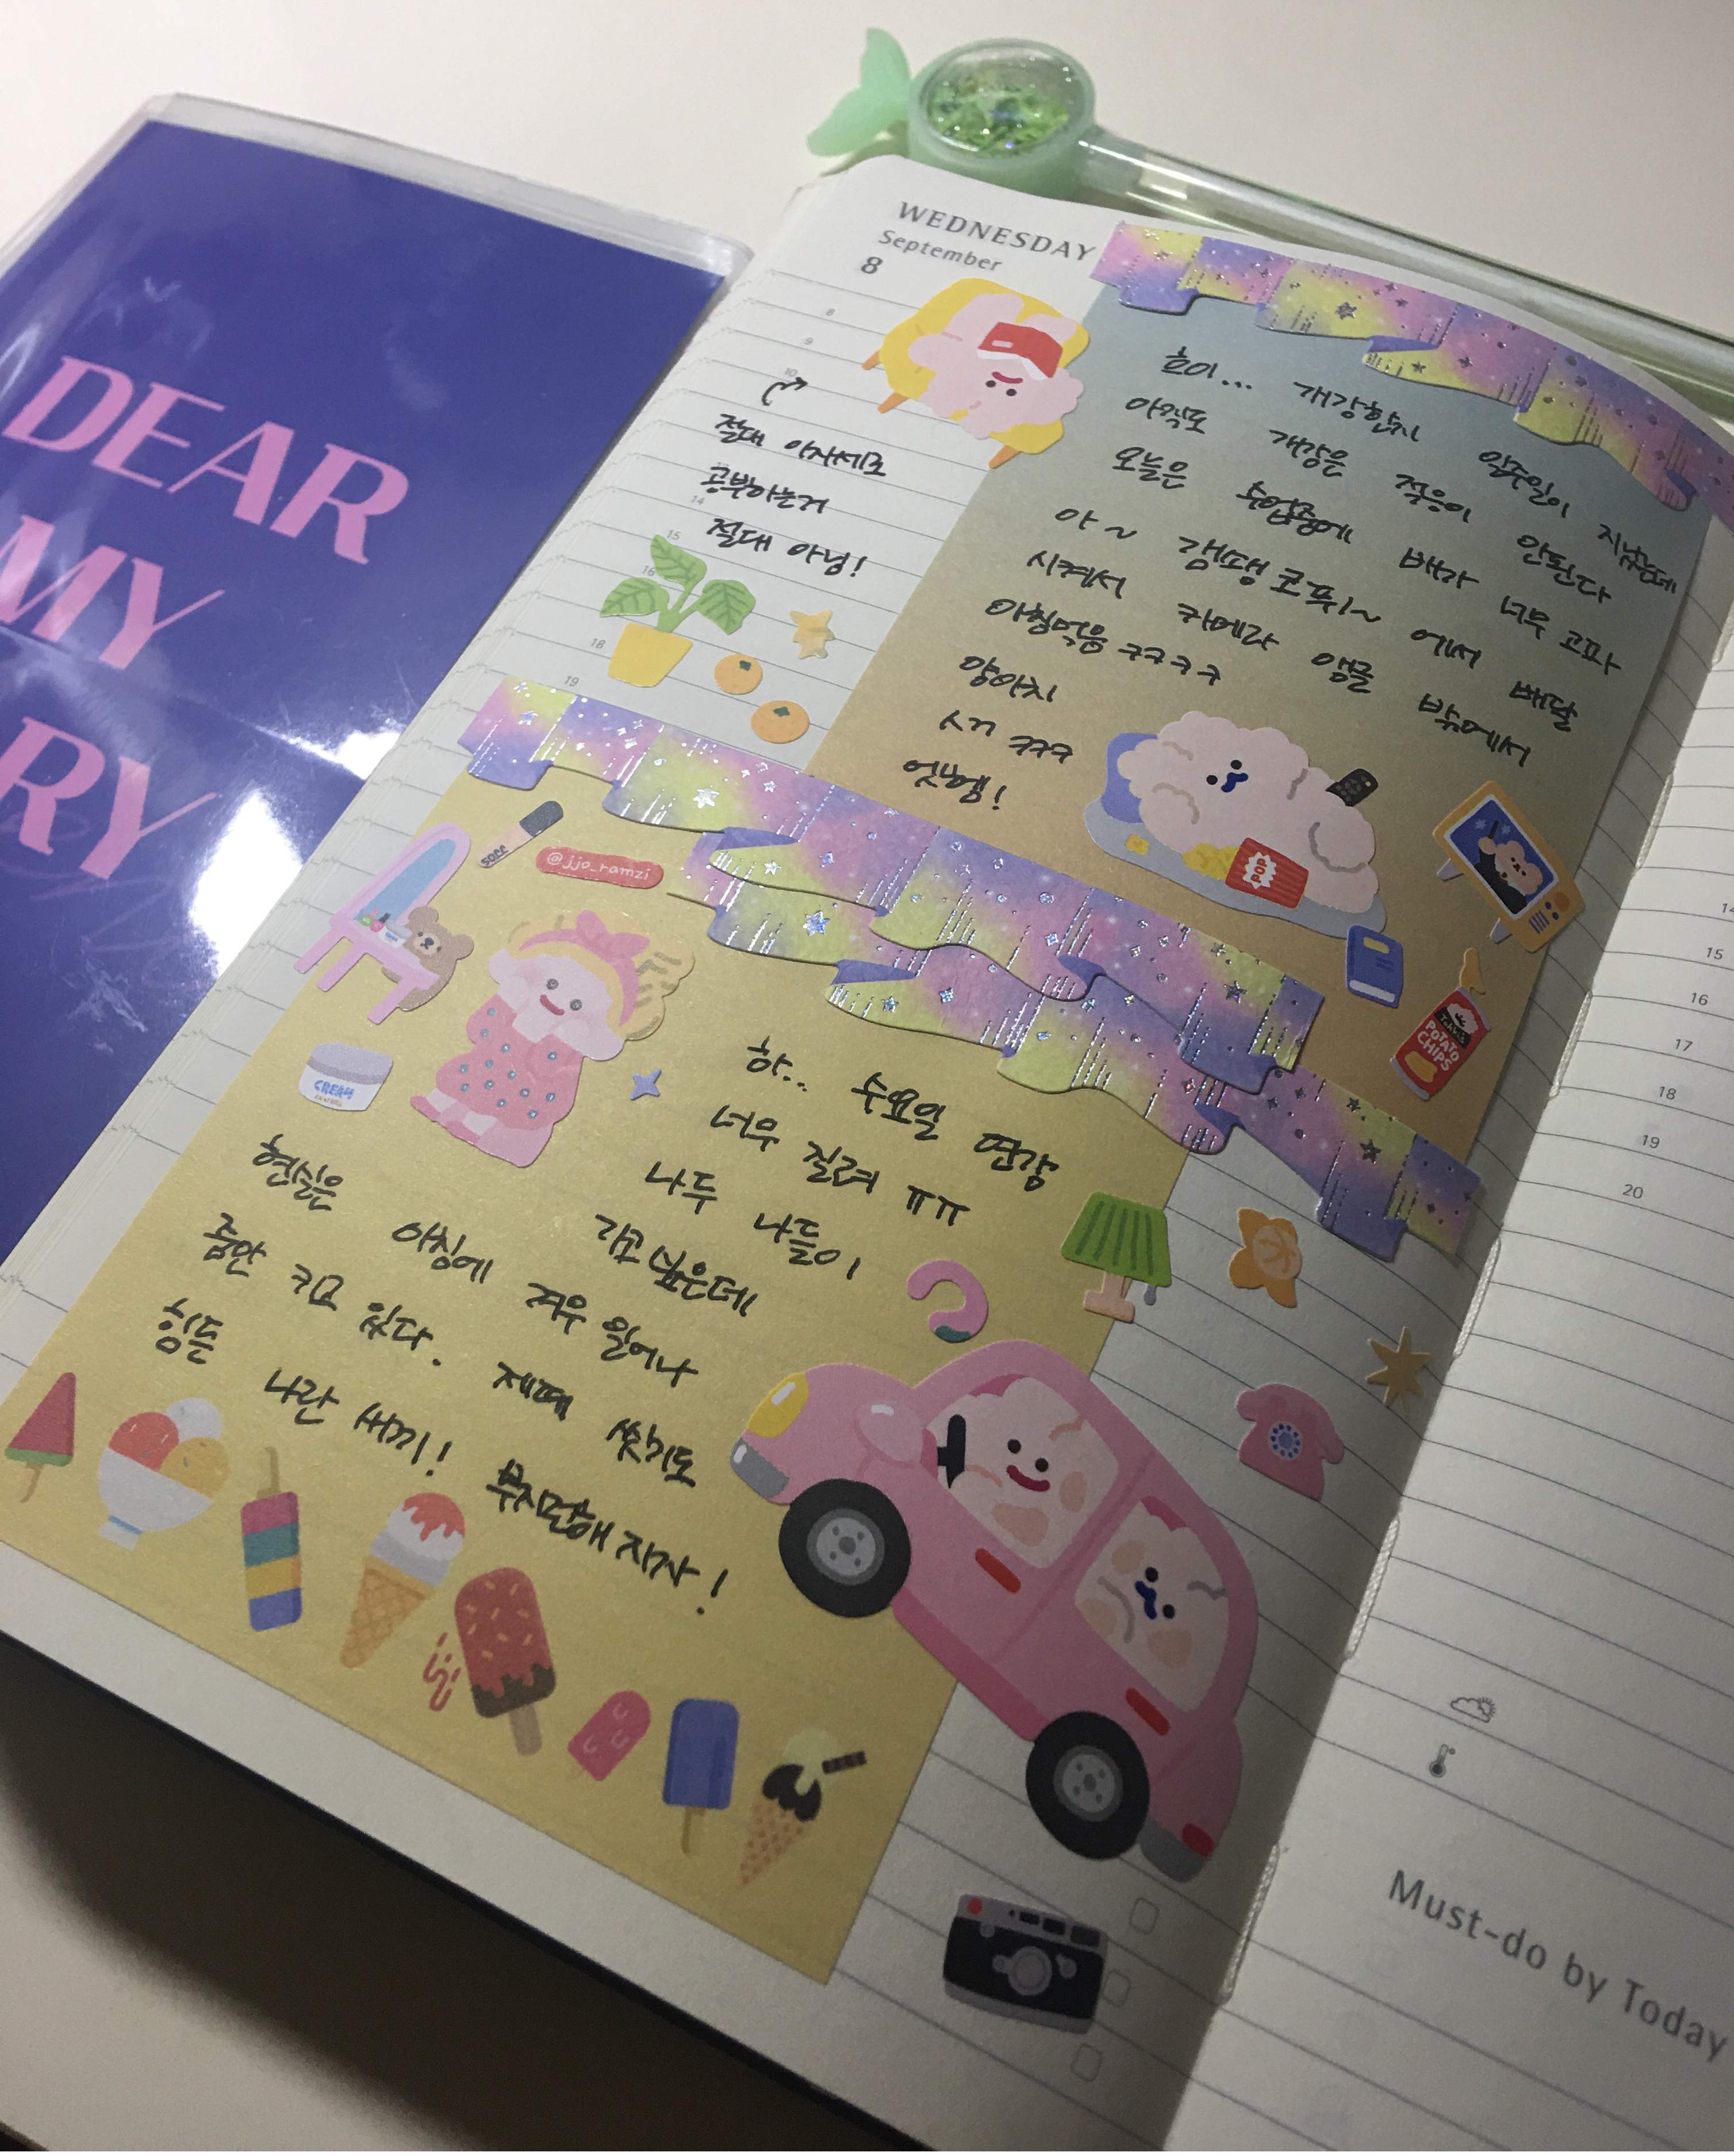 DEAR
MY
RY
WEDNESDAY
September
8
8
9
10
14
15
16
18
19
절대 이자세로
공부하는거
절대 아님!
호이... 개강한지 일주일이 지났는데
아직도 개강은 적응이 안된다
오늘은 수업중에 배가 너무 고파
아~ 갬땡 코퓌~ 에서 배달
시켜서 카메라 앵글 밖에서
아침먹음 ㅋㅋㅋㅋ
양아치
ㅅㄲ ㅋㅋㅋ
POP
POTATO
CHIPS
@jjo_ramzi
CREAM
하.. 수요일 연강
너우 질려 ㅠㅠ
나두 나들이
가고싶은데
현실은 아침에 겨우 일어나
줌만 키고 있다. 제때 씻기도
힘든 나란 쓰끼! 부지런해지자!
14
15
16
17
18
19
20
Must-do by Today